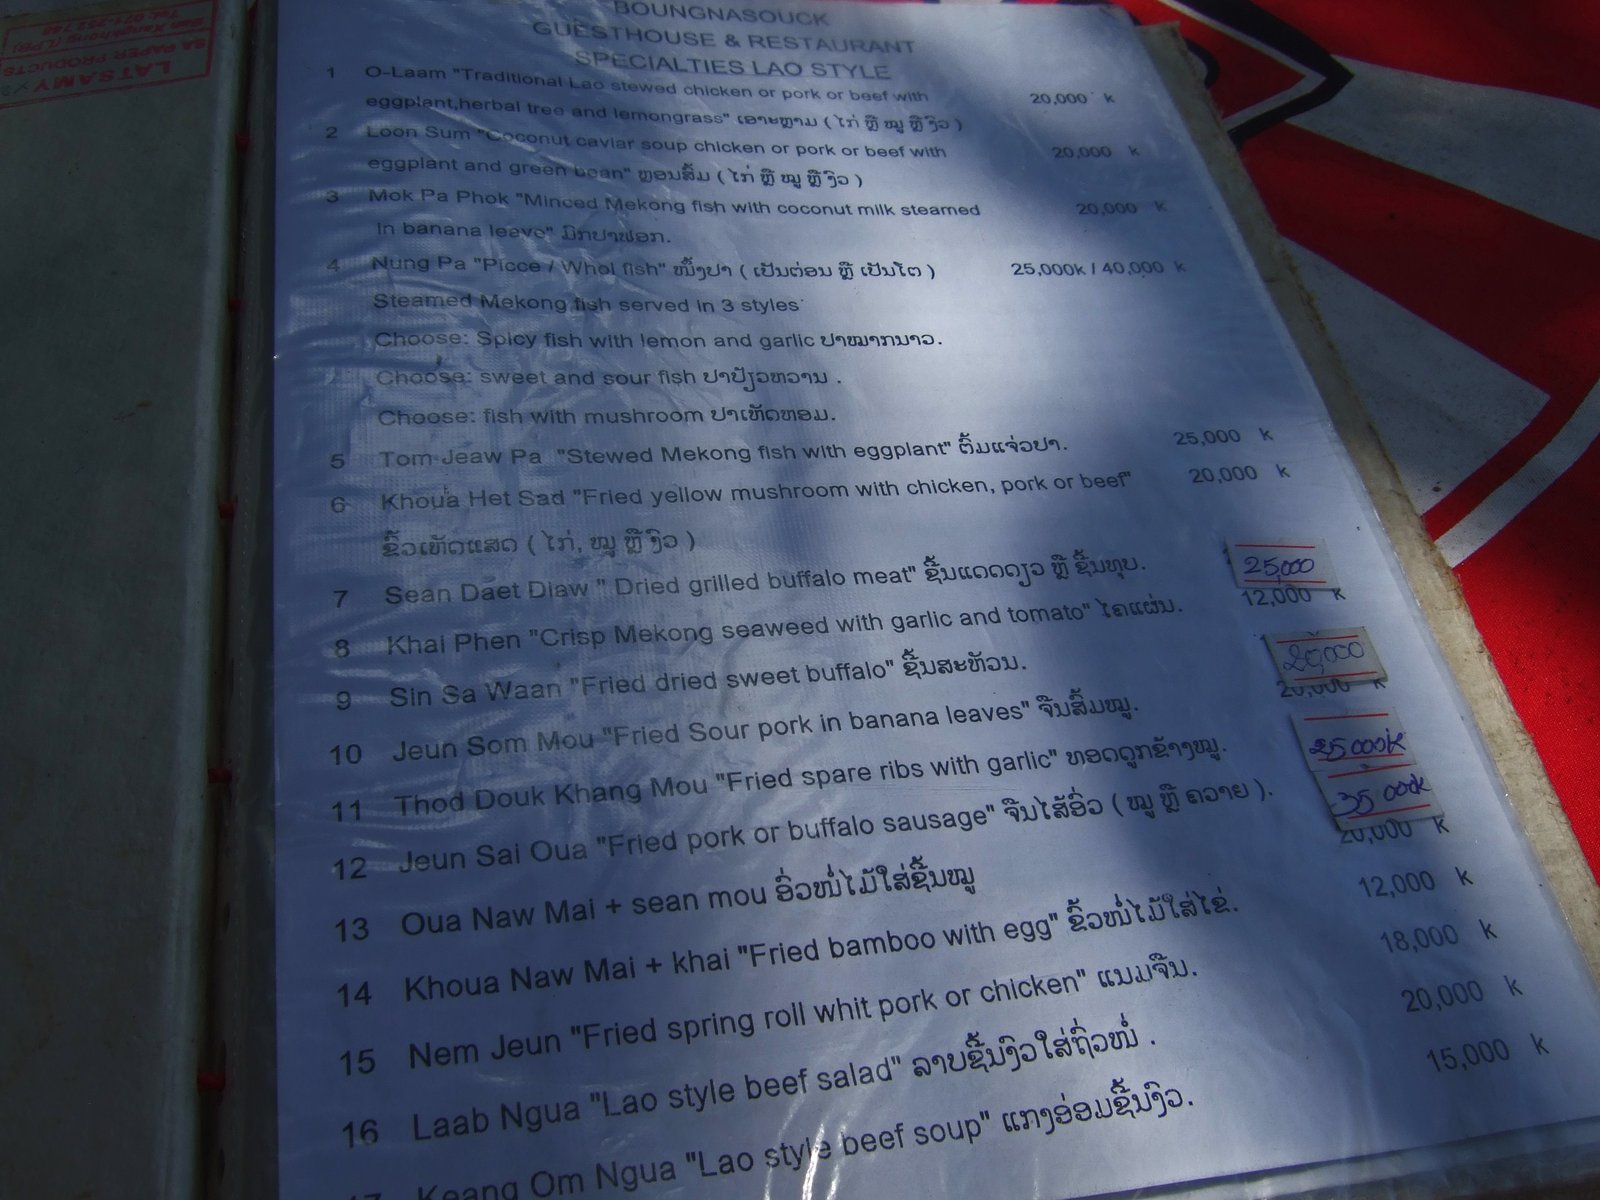 LATSAMY
SA PAPER PRODUCTS
Ban Xangkhong (LPB)
BOUNGNASOUCK
GUESTHOUSE & RESTAURANT
SPECIALTIES LAO STYLE
1 O-Laam "Traditional Lao stewed chicken or pork or beef with 20,000 k
eggplant,herbal tree and lemongrass" ເອາະຫຼາມ ( ໄກ່ ຫຼື ໝູ ຫຼື ງົວ )
2 Loon Sum "Coconut caviar soup chicken or pork or beef with 20,000 k
eggplant and green bean" ຫຼອນສົ້ມ ( ໄກ່ ຫຼື ໝູ ຫຼື ງົວ )
3 Mok Pa Phok "Minced Mekong fish with coconut milk steamed 20,000 k
in banana leave" ມົກປາຟອກ.
4 Nung Pa "Picce / Whol fish" ໜຶ້ງປາ ( ເປັນຕ່ອນ ຫຼື ເປັນໂຕ ) 25,000k / 40,000 k
Steamed Mekong fish served in 3 styles
Choose: Spicy fish with lemon and garlic ປາໝາກນາວ.
Choose: sweet and sour fish ປາປ້ຽວຫວານ .
Choose: fish with mushroom ປາເຫັດຫອມ.
5 Tom Jeaw Pa "Stewed Mekong fish with eggplant" ຕົ້ມແຈ່ວປາ. 25,000 k
6 Khoua Het Sad "Fried yellow mushroom with chicken, pork or beef" 20,000 k
ຂົ້ວເຫັດແສດ ( ໄກ່, ໝູ ຫຼື ງົວ )
7 Sean Daet Diaw " Dried grilled buffalo meat" ຊີ້ນແດດດຽວ ຫຼື ຊີ້ນທຸບ. 25,000
8 Khai Phen "Crisp Mekong seaweed with garlic and tomato" ໄຄແຜ່ນ. 12,000 k
9 Sin Sa Waan "Fried dried sweet buffalo" ຊີ້ນສະຫັວນ. 20,000
10 Jeun Som Mou "Fried Sour pork in banana leaves" ຈືນສົ້ມໝູ. 20,000 k
11 Thod Douk Khang Mou "Fried spare ribs with garlic" ທອດດູກຂ້າງໝູ. 25000k
12 Jeun Sai Oua "Fried pork or buffalo sausage" ຈືນໄສ້ອົ່ວ ( ໝູ ຫຼື ຄວາຍ ). 35 000k
13 Oua Naw Mai + sean mou ອົ່ວໜໍ່ໄມ້ໃສ່ຊີ້ນໝູ 20,000 k
14 Khoua Naw Mai + khai "Fried bamboo with egg" ຂົ້ວໜໍ່ໄມ້ໃສ່ໄຂ່. 12,000 k
15 Nem Jeun "Fried spring roll whit pork or chicken" ແນມຈືນ. 18,000 k
16 Laab Ngua "Lao style beef salad" ລາບຊີ້ນງົວໃສ່ຖົ່ວໜໍ່ . 20,000 k
17 Keang Om Ngua "Lao style beef soup" ແກງອ່ອມຊີ້ນງົວ. 15,000 k